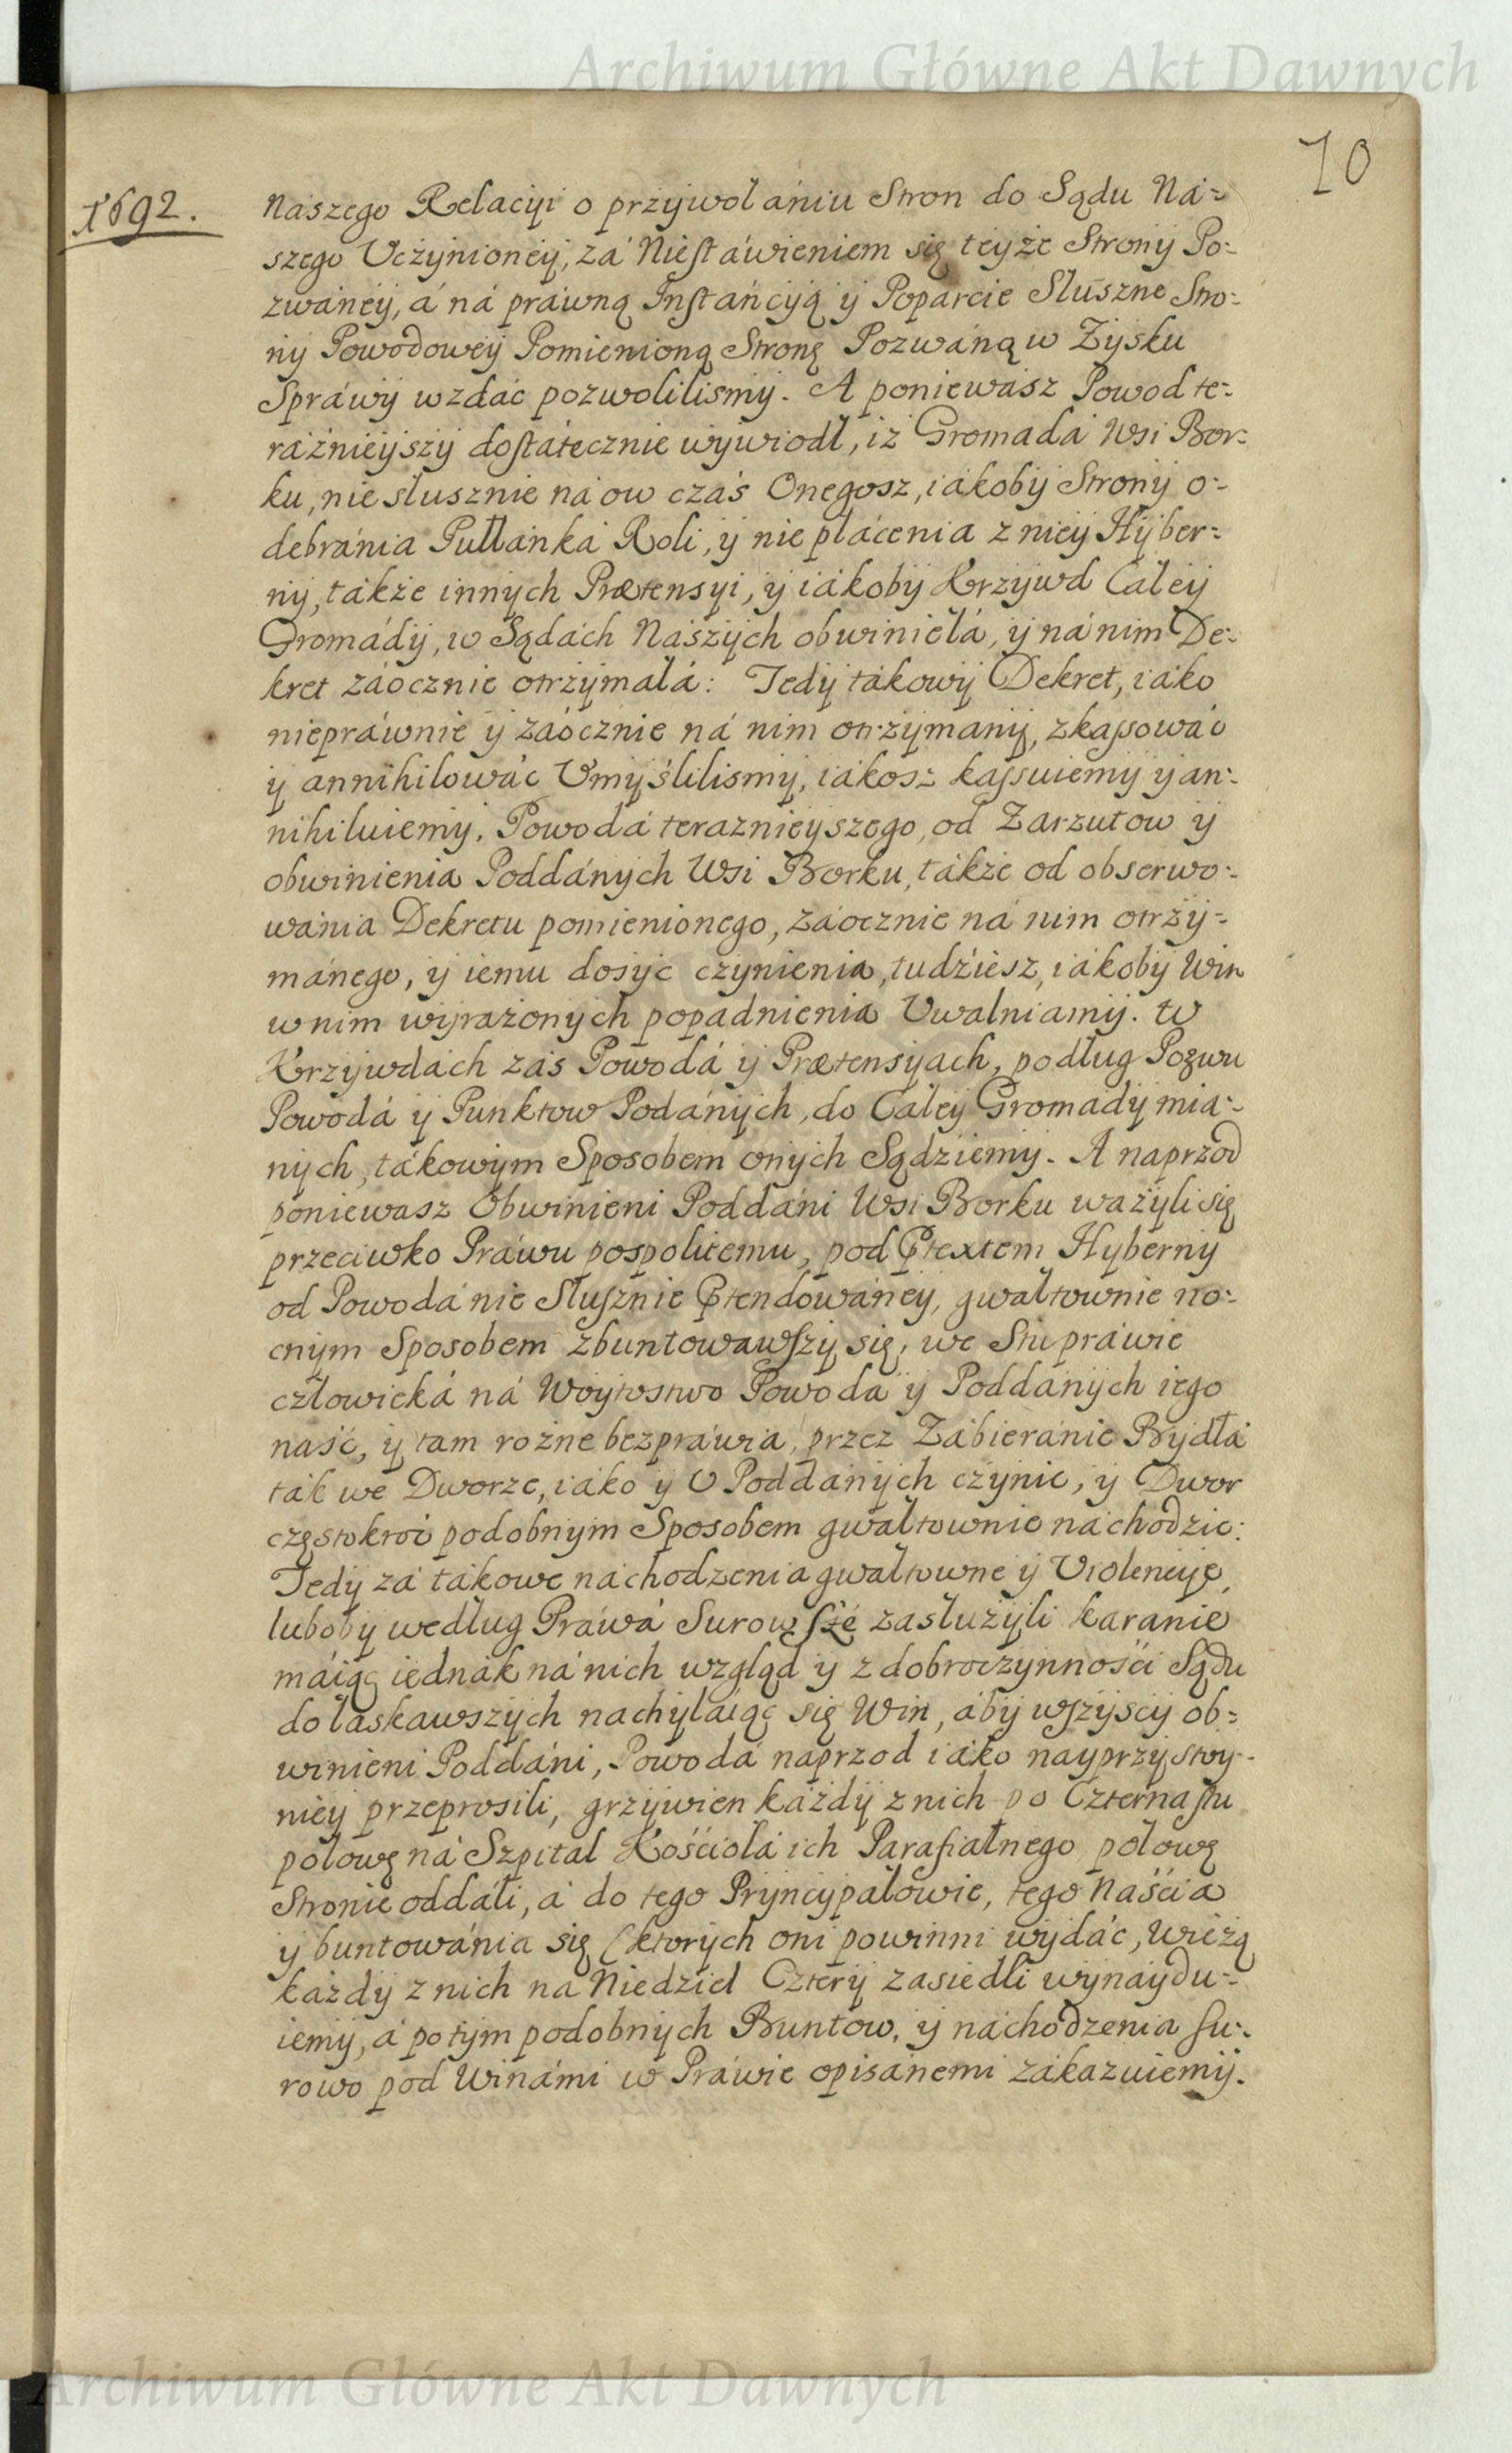 Archiwum Główne Akt Dawnych
10
1692.
Naszego Relacyi o przywołániu Stron do Sądu Ná-
szego Uczynioney, zá Niestáwieniem się teyże Strony Po-
zwáney, á ná práwną Instáncyą y Poparcie Sluszne Stro-
ny Powodowey Pomienioną Stronę Pozwáną w Zysku
Spráwy wzdác pozwolilismy. A poniewász Powod te-
ráznieyszy dostátecznie wywiodł, iż Gromadá Wsi Bor-
ku, nie slusznie ná ow czás Onegosz, iákoby Strony o-
debránia Pułłanká Roli, y nie płácenia z niey Hyber-
ny, tákże innych Prætensyi, y iákoby Krzywd Całey
Gromády, w Sądách Nászych obwiniełá, y ná nim De-
kret záocznie otrzymałá: Tedy tákowy Dekret, iáko
niepráwnie y záocznie ná nim otrzymany, zkassowác
y annihilowác Umyślilismy, iákosz kassuiemy y an-
nihiluiemy. Powodá teraznieyszego, od Zarzutow y
obwinienia Poddánych Wsi Borku, tákże od obserwo-
wánia Dekretu pomienionego, záocznie ná nim otrzy-
mánego, y iemu dosyc czynienia, tudziesz, iákoby Win
w nim wyrażonych popadnienia Uwalniamy. W
Krzywdách zás Powodá y Prætensyach, podług Pozwu
Powodá y Punktow Podánych, do Całey Gromady mia-
nych, tákowym Sposobem onych Sądziemy. A naprzod
poniewasz Obwinieni Poddáni Wsi Borku ważyli się
przeciwko Práwu pospolitemu, pod Ptextem Hyberny
od Powodá nie Słusznie Ptendowáney, gwałtownie no-
cnym Sposobem zbuntowawszy się, we Stu práwie
człowieká ná Woytostwo Powodá y Poddánych iego
naść, y tam rożne bezpráwia, przez Zábieránie Bydłá
ták we Dworze, iáko y U Poddánych czynic, y Dwor
częstokroć podobnym Sposobem gwałtownie náchodzic:
Tedy zá tákowe nachodzenia gwałtowne y Violencye,
luboby według Práwá Surowszé zasłużyli karanie
máiąc iednák ná nich wzgląd y z dobroczynności Sądu
do łaskawszych nachylaiąc się Win, áby wszyscy ob-
winieni Poddáni, Powodá naprzod iáko nayprzystoy-
niey przeprosili, grzywien káżdy z nich po Czternastu
połowę ná Szpital Kościołá ich Parafiałnego połowę
Stronie oddáli, á do tego Pryncypałowie, tego Naścia
y buntowánia się (ktorych oni powinni wydác, Wieżą
káżdy z nich na Niedziel Cztery zasiedli wynaydu-
iemy, á potym podobnych Buntow, y nachodzenia su-
rowo pod Winámi w Práwie opisánemi zákazuiemy.
Archiwum Główne Akt Dawnych